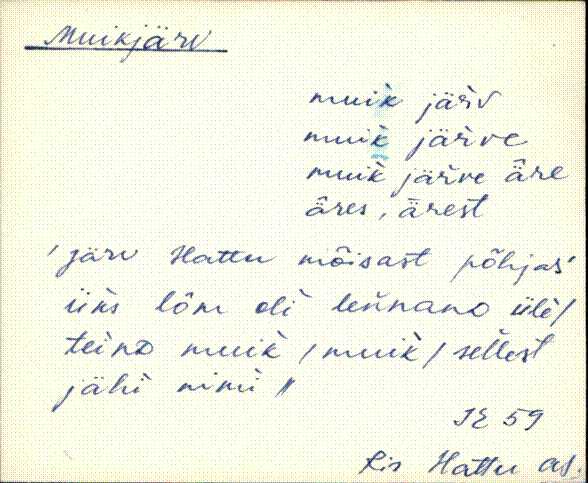 Muikjärv
muik järv
muik järve
muik järve äre
äres, ärest
'järv Hattu mõisast põhjas'
üits lõm oli lennano üle/
teino muik /muik/ sellest
jähi nimi //
IE 59
Ris Hattu as.